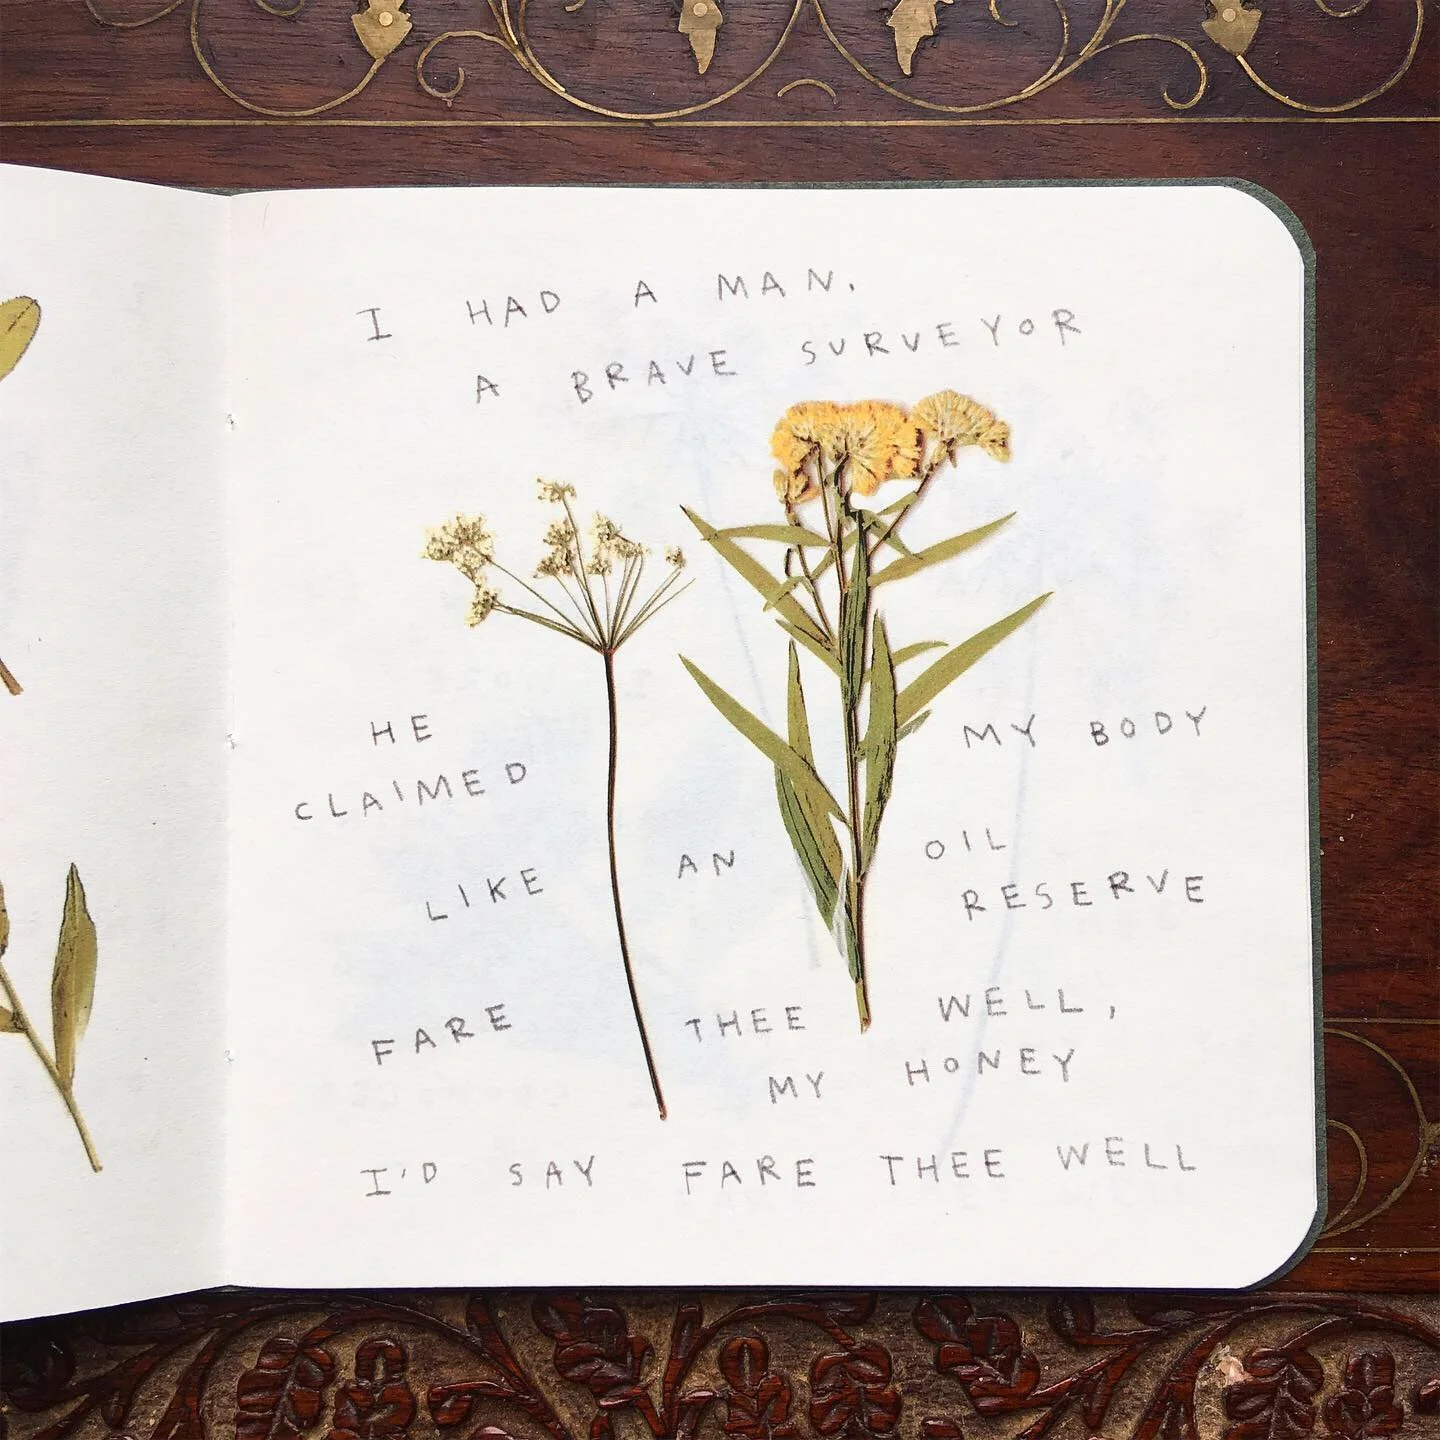 I HAD A MAN,
A BRAVE SURVEYOR
HE
CLAIMED
MY BODY
LIKE AN OIL
RESERVE
FARE THEE WELL,
MY HONEY
I'D SAY FARE THEE WELL